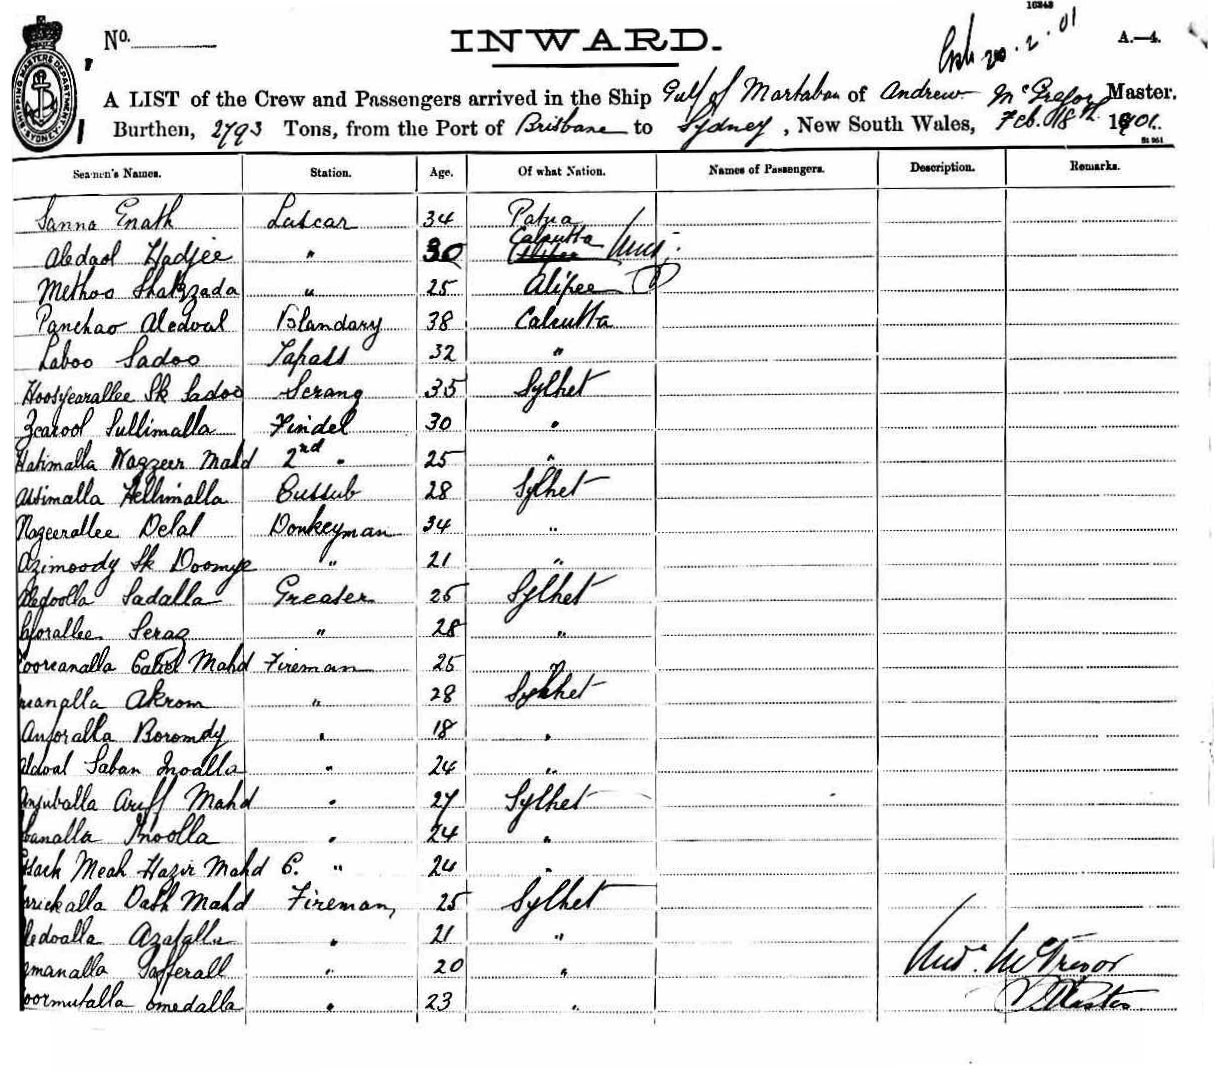 16348
No.
INWARD.
20.2.01
A.—4.
A LIST of the Crew and Passengers arrived in the Ship Gulf of Martaban of Andrew McGregor Master.
Burthen, 2793 Tons, from the Port of Brisbane to Sydney, New South Wales, Feb. 18th 1901.
SHIPPING MASTERS DEPARTMENT SYDNEY
Seamen's Names. Station. Age. Of what Nation. Names of Passengers. Description. Remarks.
Sanna Enath Lascar 34 Patna
Aledaol Hadjee " 30 Calcutta
Methoo Shahzada " 25 Alipee
Panchao Aledoal Blandary 38 Calcutta
Laboo Sadoo Tapass 32 "
Hoosyearallee Sk Sadoo Serang 35 Sylhet
Zearool Sullimalla Tindel 30 "
Hatimalla Nazzeer Mahd 2nd " 25 "
Assimalla Hellimalla Cussub 28 Sylhet
Nazeerallee Delal Donkeyman 34 "
Azimoody Sk Doomye " 21 "
Aledoolla Sadalla Greaser 25 Sylhet
Seraz " 28 "
Mahd Fireman 25 "
Akrom " 28 Sylhet
Anforalla Boromdy " 18 "
Aldoal Saban Inoalla " 24 "
Anjuballa Ariff Mahd " 27 Sylhet
Inoolla " 24 "
Meah Hazir Mahd C. " 24 "
Dash Mahd Fireman, 25 Sylhet
Azafalla " 21 "
Gafferall " 20 "
Omedalla " 23 "
Master